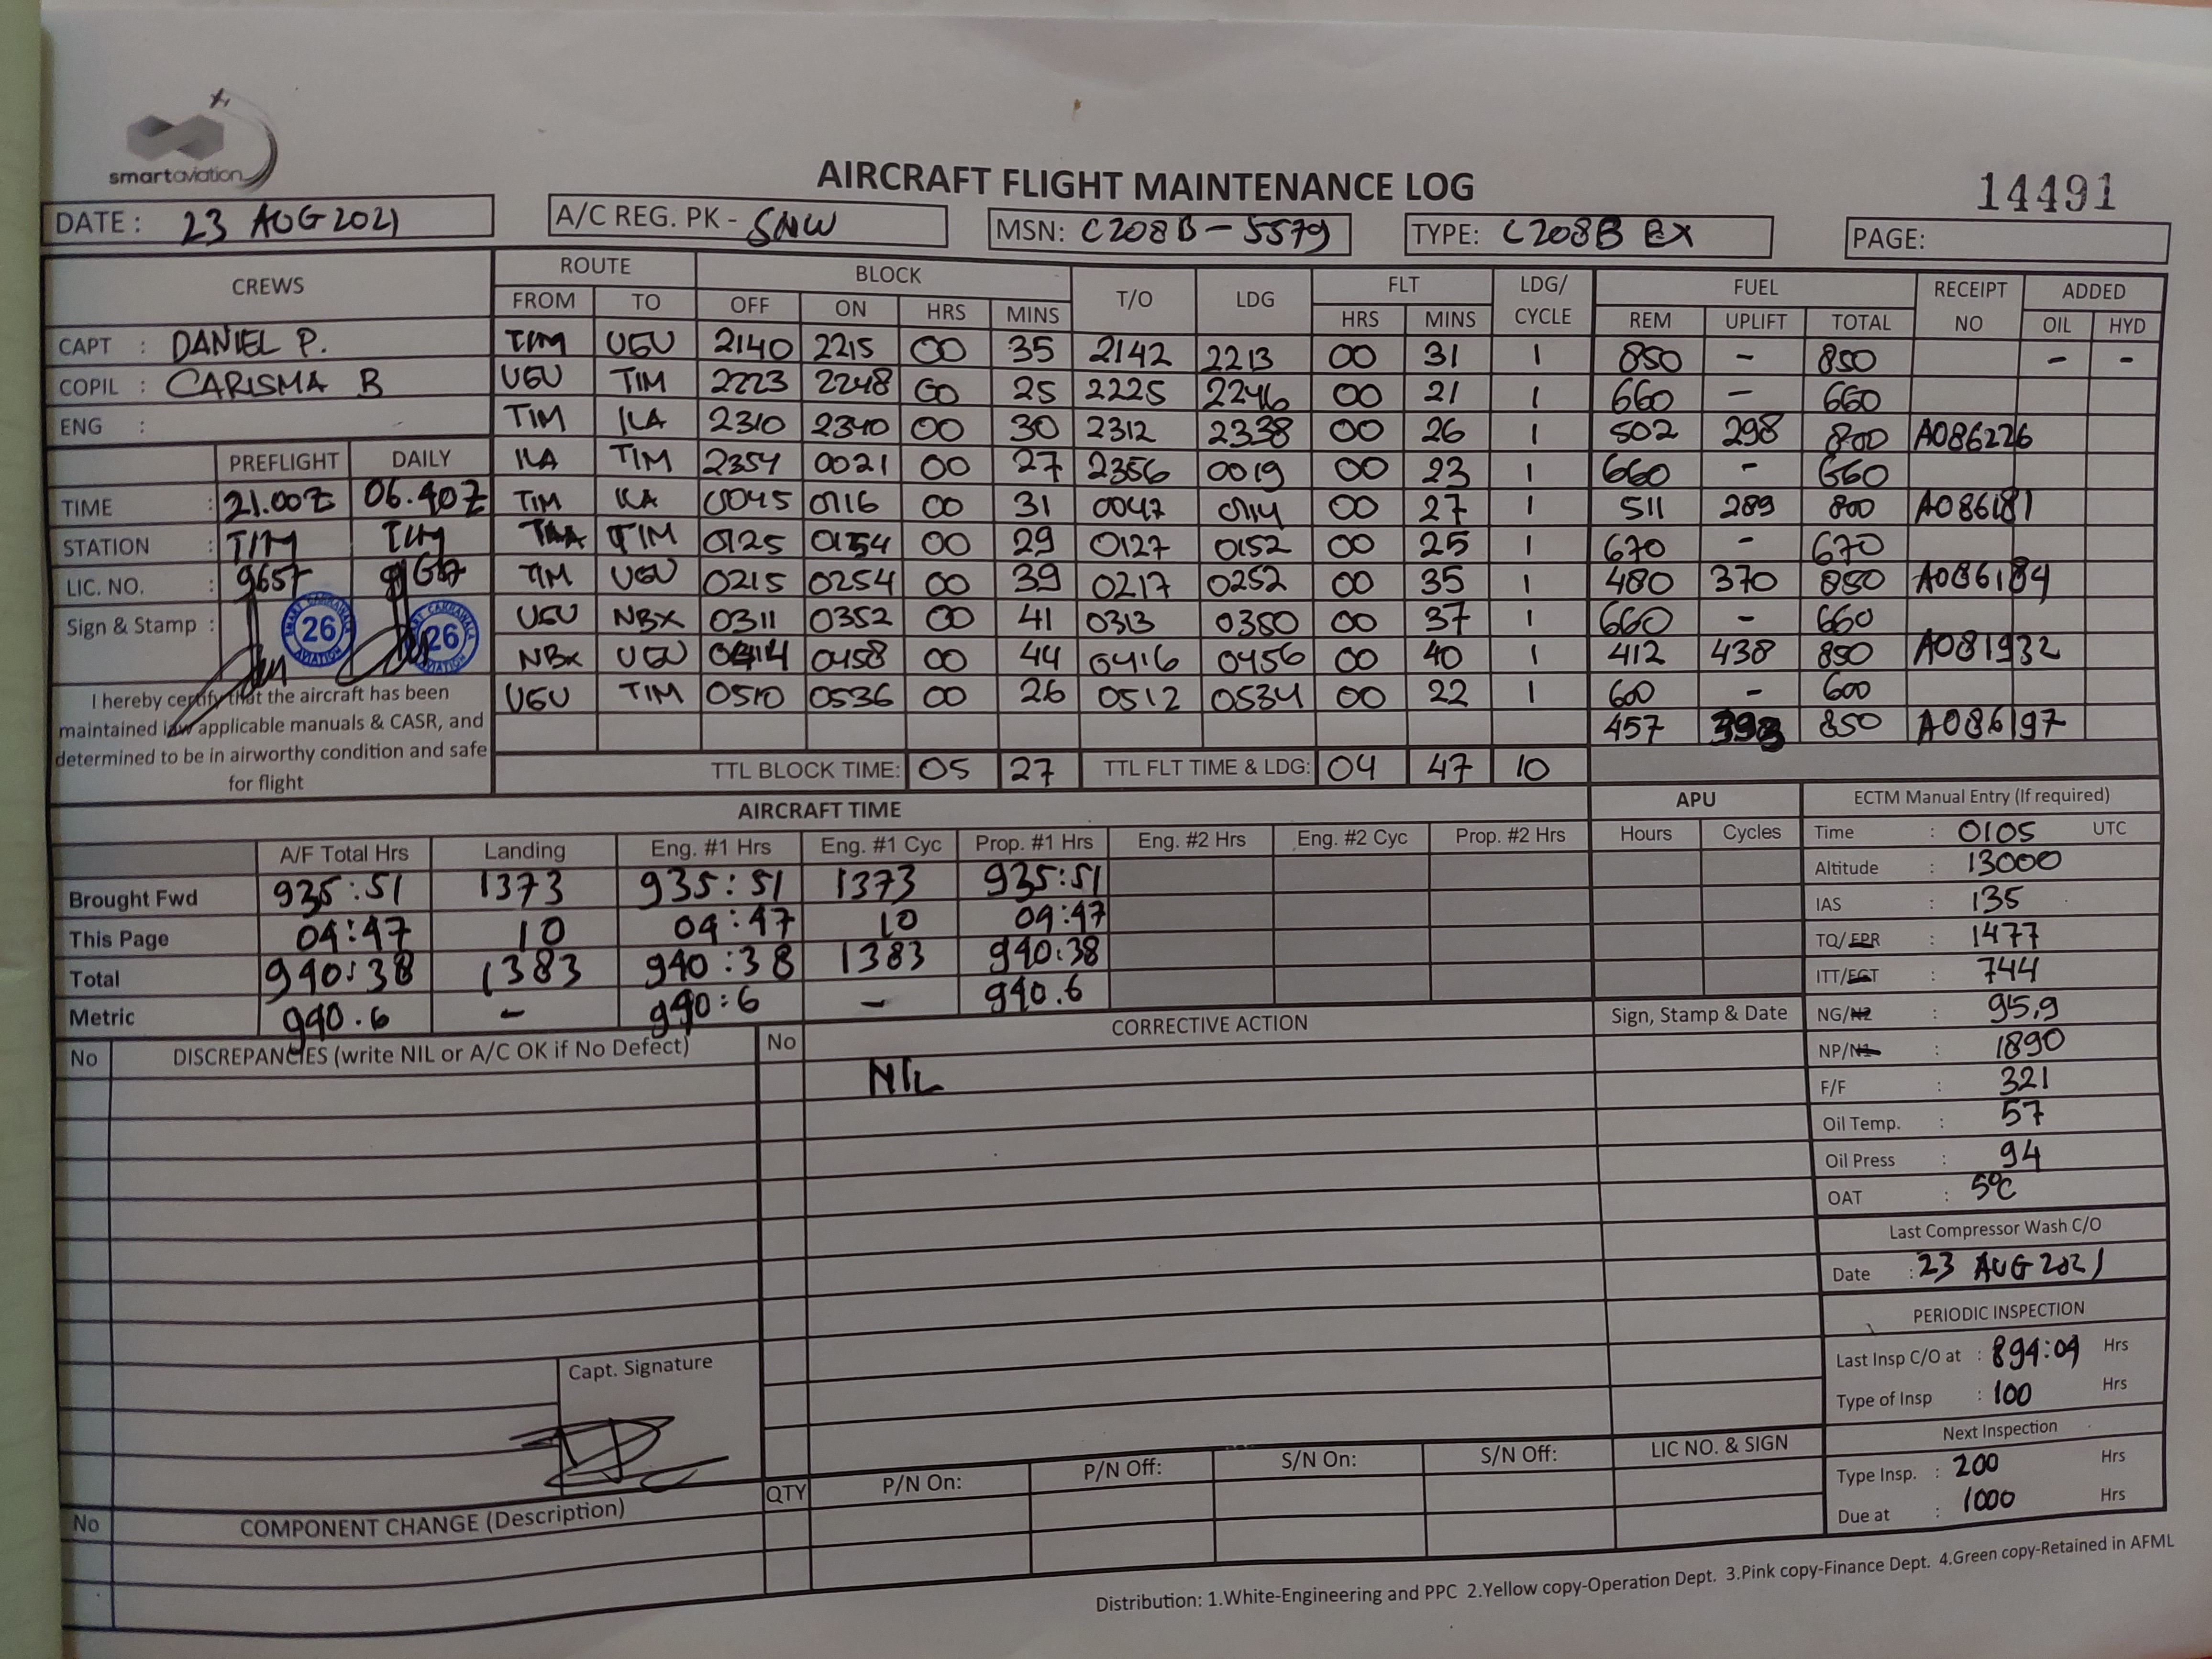 smartaviation
AIRCRAFT FLIGHT MAINTENANCE LOG
14491
DATE : 23 AUG 2021 A/C REG. PK - SNW MSN: C208B - 5579 TYPE: C208B EX PAGE:
CREWS ROUTE BLOCK T/O LDG FLT LDG/ CYCLE FUEL RECEIPT NO ADDED
FROM TO OFF ON HRS MINS HRS MINS REM UPLIFT TOTAL OIL HYD
CAPT : DANIEL P. TIM UGU 2140 2215 00 35 2142 2213 00 31 1 850 - 850 - -
COPIL : CARISMA B UGU TIM 2223 2248 00 25 2225 2246 00 21 1 660 - 660
ENG : TIM ILA 2310 2340 00 30 2312 2338 00 26 1 502 298 800 A086226
PREFLIGHT DAILY ILA TIM 2354 0021 00 27 2356 0019 00 23 1 660 - 660
TIME : 21.00Z 06.40Z TIM ILA 0045 0116 00 31 0047 0114 00 27 1 511 289 800 A086181
STATION : TIM TIM TIM 0125 0154 00 29 0127 0152 00 25 1 670 - 670
LIC. NO. : 9657 TIM UGU 0215 0254 00 39 0217 0252 00 35 1 480 370 850 A086184
Sign & Stamp : UGU NBX 0311 0352 00 41 0313 0350 00 37 1 660 - 660
SMART CAKRAWALA AVIATION 26
26
NBX UGU 0414 0458 00 44 0416 0456 00 40 1 412 438 850 A081932
UGU TIM 0510 0536 00 26 0512 0534 00 22 1 600 - 600
457 393 850 A086197
I hereby certify that the aircraft has been
maintained iaw applicable manuals & CASR, and
determined to be in airworthy condition and safe
for flight
TTL BLOCK TIME: 05 27 TTL FLT TIME & LDG: 04 47 10
AIRCRAFT TIME APU
A/F Total Hrs Landing Eng. #1 Hrs Eng. #1 Cyc Prop. #1 Hrs Eng. #2 Hrs Eng. #2 Cyc Prop. #2 Hrs Hours Cycles
Brought Fwd 935:51 1373 935:51 1373 935:51
This Page 04:47 10 04:47 10 04:47
Total 940:38 1383 940:38 1383 940:38
Metric 940.6 - 940:6 - 940.6
ECTM Manual Entry (If required)
Time : 0105 UTC
Altitude : 13000
IAS : 135
TQ/EPR : 1477
ITT/EGT : 744
NG/N2 : 95,9
NP/N1 : 1890
F/F : 321
Oil Temp. : 57
Oil Press : 94
OAT : 5°C
Last Compressor Wash C/O
Date : 23 AUG 2021
PERIODIC INSPECTION
Last Insp C/O at : 894:09 Hrs
Type of Insp : 100 Hrs
Next Inspection
Type Insp. : 200 Hrs
Due at : 1000 Hrs
No DISCREPANCIES (write NIL or A/C OK if No Defect) No CORRECTIVE ACTION Sign, Stamp & Date
NIL
Capt. Signature
No COMPONENT CHANGE (Description) QTY P/N On: P/N Off: S/N On: S/N Off: LIC NO. & SIGN
Distribution: 1.White-Engineering and PPC 2.Yellow copy-Operation Dept. 3.Pink copy-Finance Dept. 4.Green copy-Retained in AFML